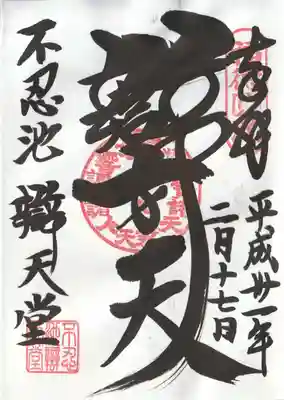 奉拝
平成廿一年
二月十七日
辯才天
不忍池
辯天堂